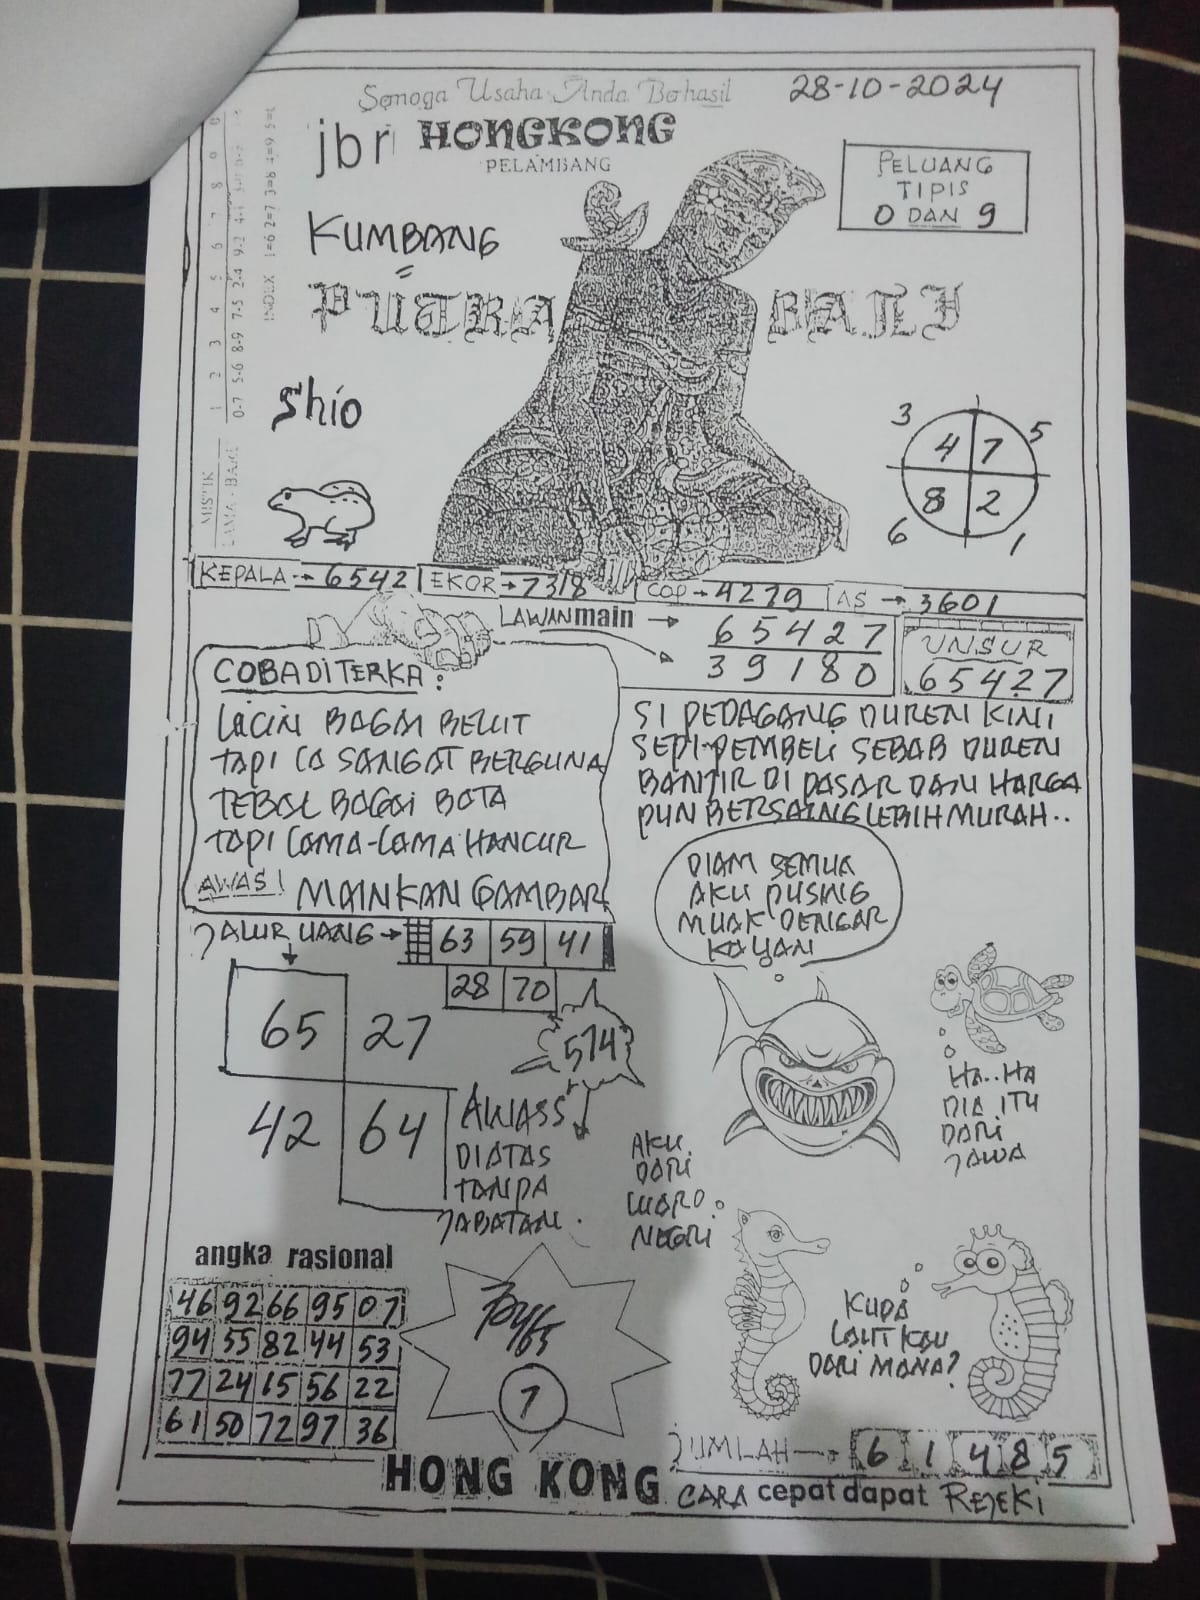 Semoga Usaha Anda Berhasil
28-10-2024
jbr HONGKONG
PELAMBANG
PELUANG
TIPIS
0 DAN 9
KUMBANG
PUTRA BALI
Shio
MISTIK
LAMA - BARU
1 2 3 4 5 6 7 8 9 0
INDEX 1=6 2=7 3=8 4=9 5=0
3 5
4 7
8 2
6 1
KEPALA → 6542 EKOR → 7318 COP → 4279 AS → 3601
LAWAN main → 65427
39180
UNSUR
65427
COBA DITERKA :
LICIN BAGAI BELUT
TAPI IA SANGAT BERGUNA
TEBAL BAGAI BATA
TAPI LAMA-LAMA HANCUR
AWAS! MAINKAN GAMBAR
SI PEDAGANG DUREN KINI
SEPI PEMBELI SEBAB DUREN
BANJIR DI PASAR DAN HARGA
PUN BERSAING LEBIH MURAH..
JALUR UANG → 63 59 41
28 70
65 27
42 64
574
AWASS
DIATAS
TANPA
JABATAN.
DIAM SEMUA
AKU PUSING
MUAK DENGAR
KALIAN
HA..HA
DIA ITU
DARI
JAWA
AKU
DARI
LUAR
NEGRI
KUDA
LAUT KAU
DARI MANA?
angka rasional
46 92 66 95 07
94 55 82 44 53
77 24 15 56 22
61 50 72 97 36
7
JUMLAH → 6 1 4 8 5
HONG KONG CARA cepat dapat REJEKI